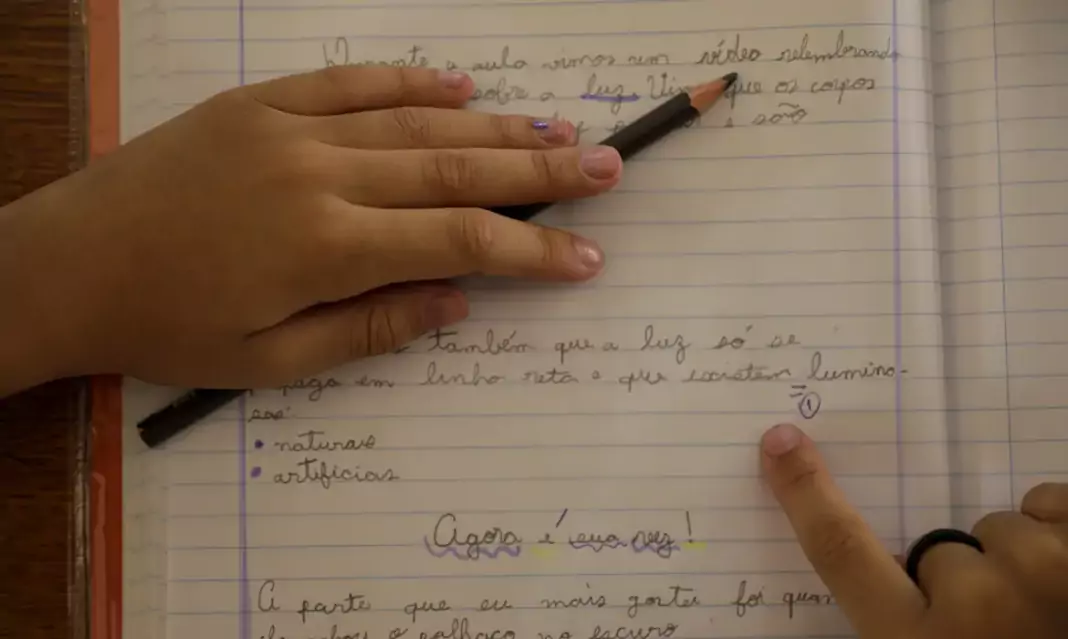 Durante a aula vimos um vídeo relembrando
sobre a luz. que os corpos
são
também que a luz só se
em linha reta e que existem lumino-
sas:
• naturais
• artificias
①
Agora é sua vez!
A parte que eu mais gostei foi
o palhaço no escuro